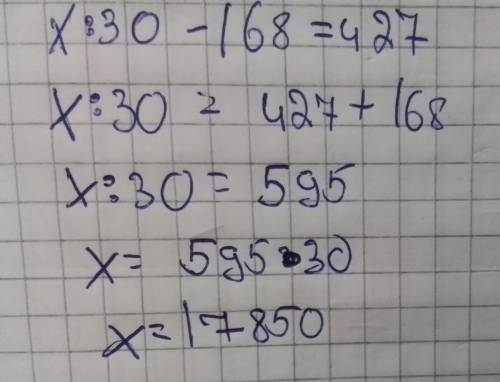 x:30 - 168 = 427
x:30 = 427 + 168
x:30 = 595
x = 595 · 30
x = 17850